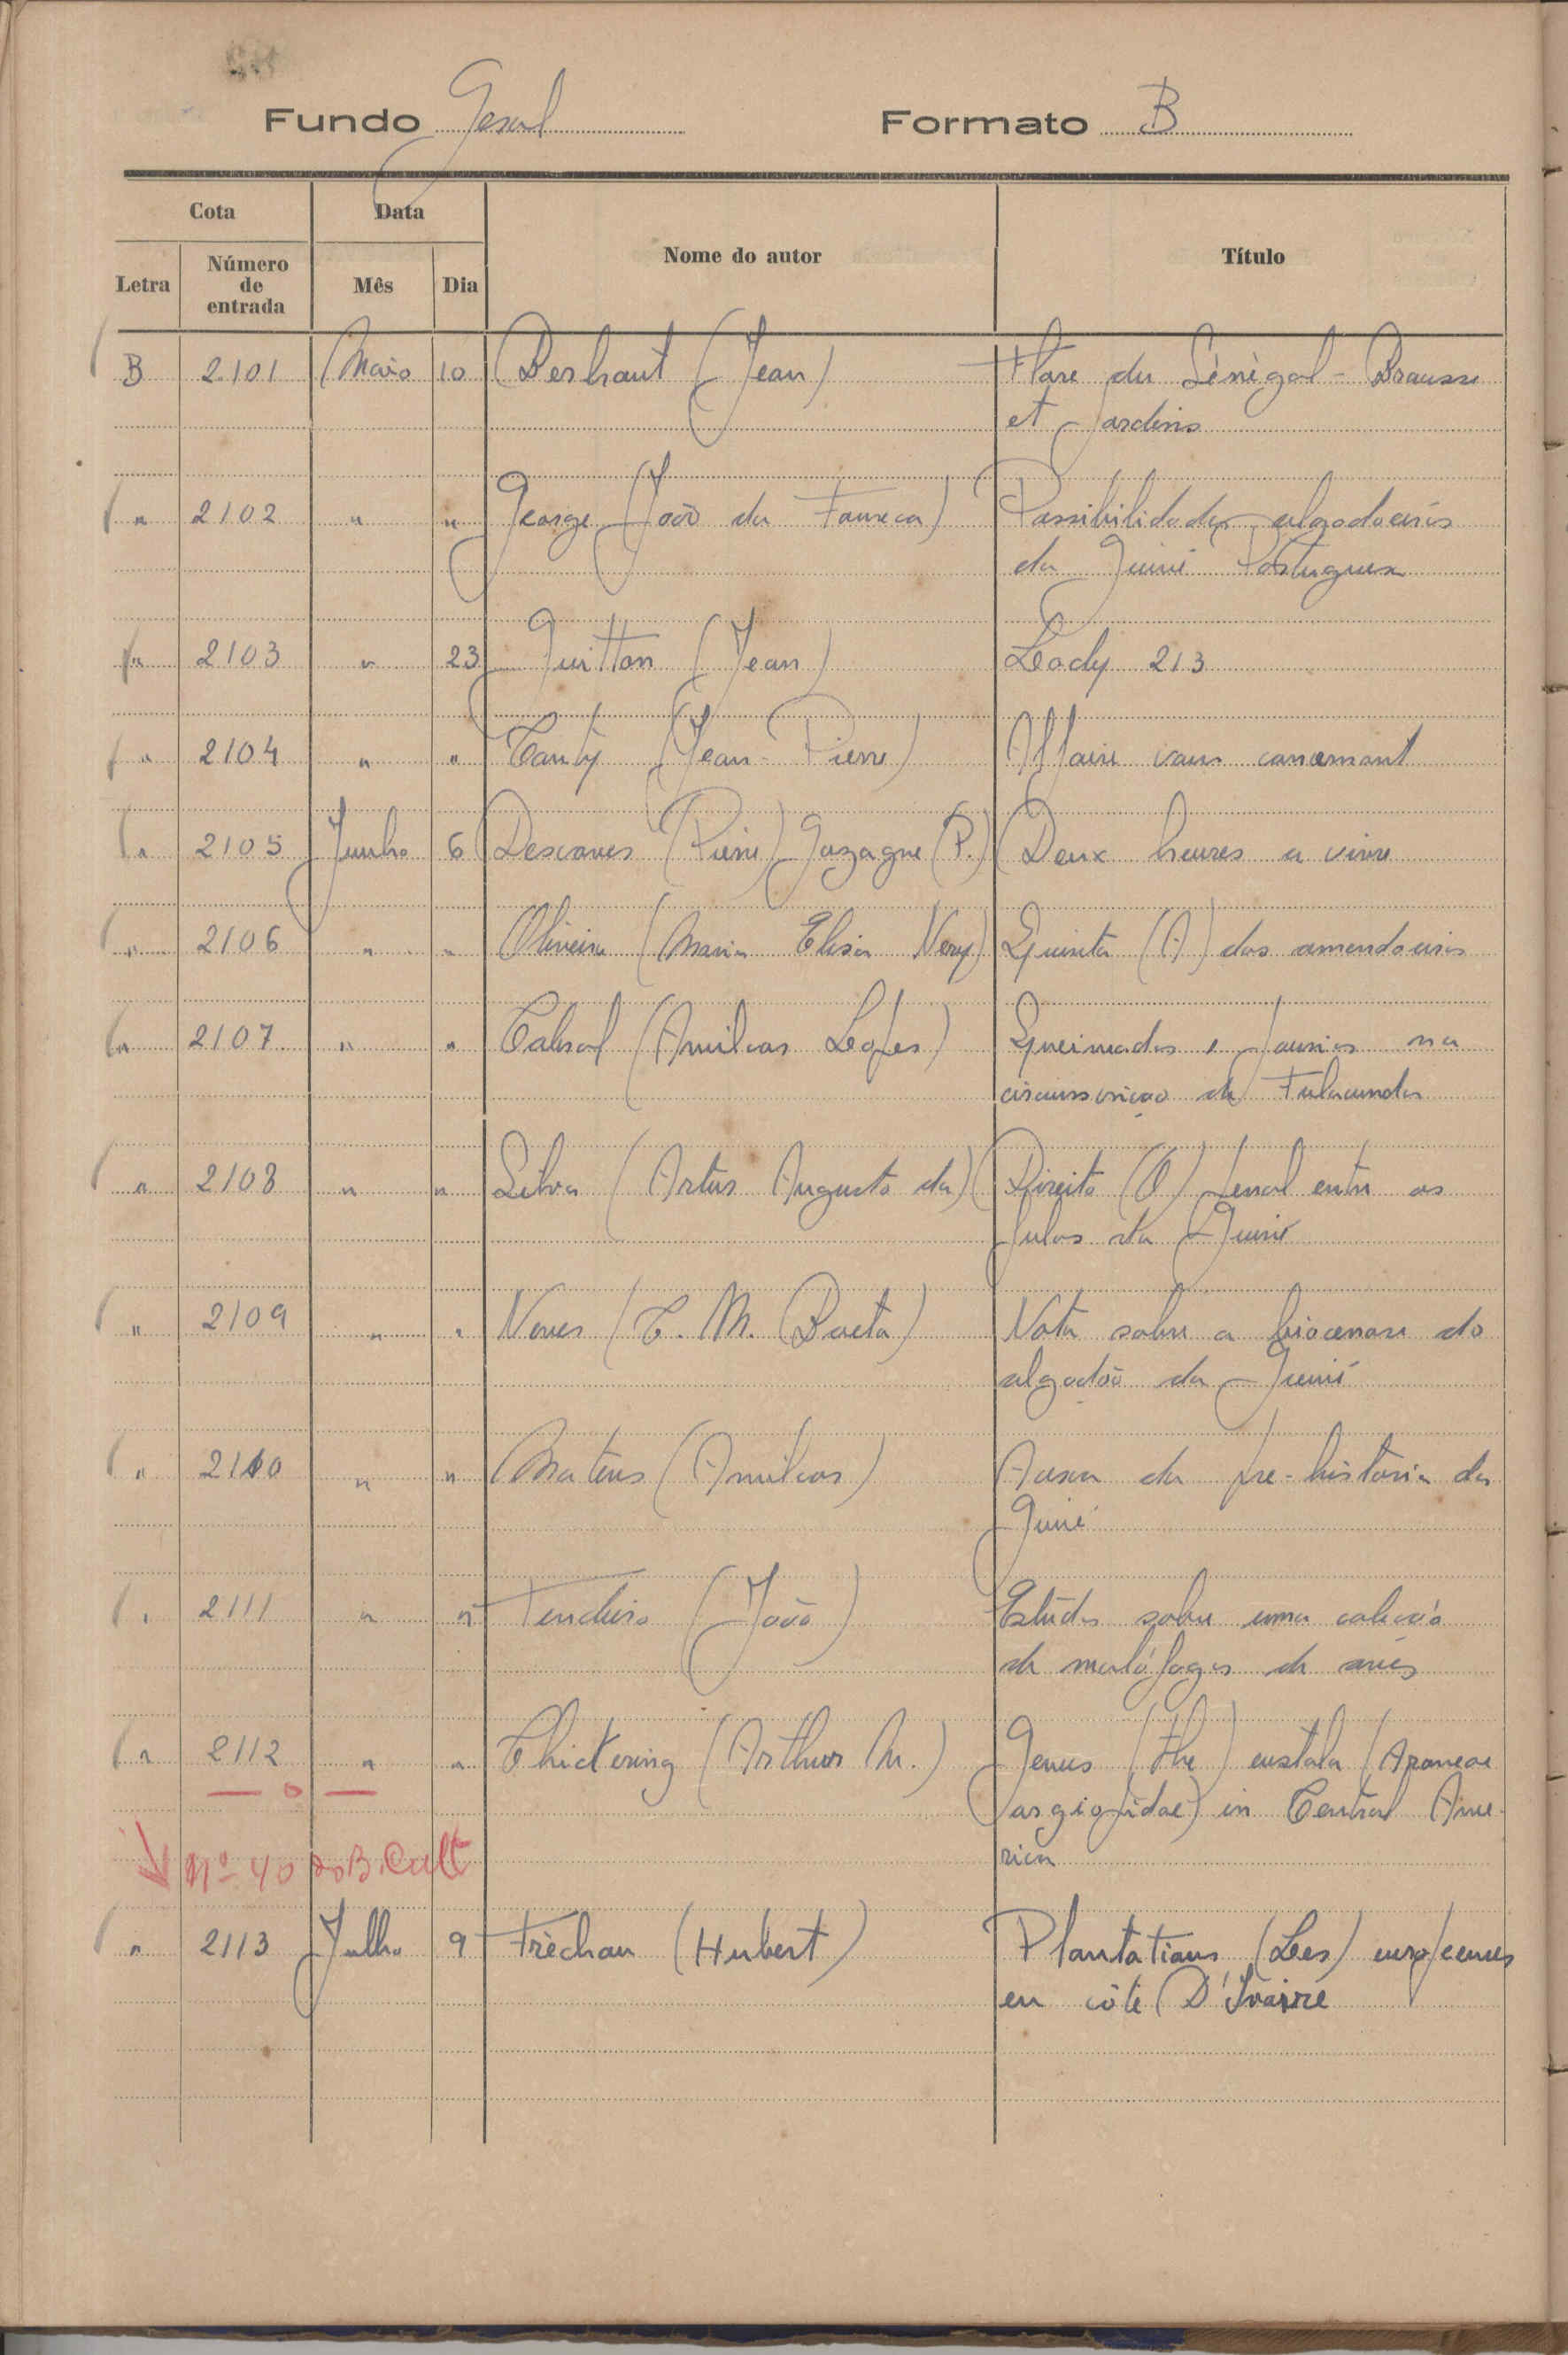 Fundo Geral Formato B
Cota Data Nome do autor Título
Letra Número de entrada Mês Dia
B 2101 Maio 10 Berhaut (Jean) Flore du Sénégal - Brousse
et Jardins
" 2102 " " George (João da Fonseca) Possibilidades algodoeiras
da Guiné Portuguesa
" 2103 " 23 Guitton (Jean) Lady 213
" 2104 " " Conty (Jean-Pierre) Affaire vous concernant
" 2105 Junho 6 Descaves (Pierre) Gazagne (P.) Deux heures a vivre
" 2106 " " Oliveira (Maria Elisa Nery) Quinta (A) das amendoeiras
" 2107 " " Cabral (Amilcar Lopes) Queimadas e pousios na
circunscriçao de Fulacunda
" 2108 " " Silva (Artur Augusto da) Direito (O) penal entre os
fulas da Guiné
" 2109 " " Neves (C. M. Baeta) Nota sobre a biocenose do
algodão da Guiné
" 2110 " " Mateus (Amilcar) Acerca da pre-história da
Guiné
" 2111 " " Tendeiro (João) Estudos sobre uma colecção
de malófagos de aves
" 2112 " " Chickering (Arthur M.) Genus (the) eustala (Araneae
argiopidae) in Central Ame-
rica
— o —
Nº 40 do B. Cult
" 2113 Julho 9 Fréchou (Hubert) Plantations (Les) européennes
en côte D'Ivoire